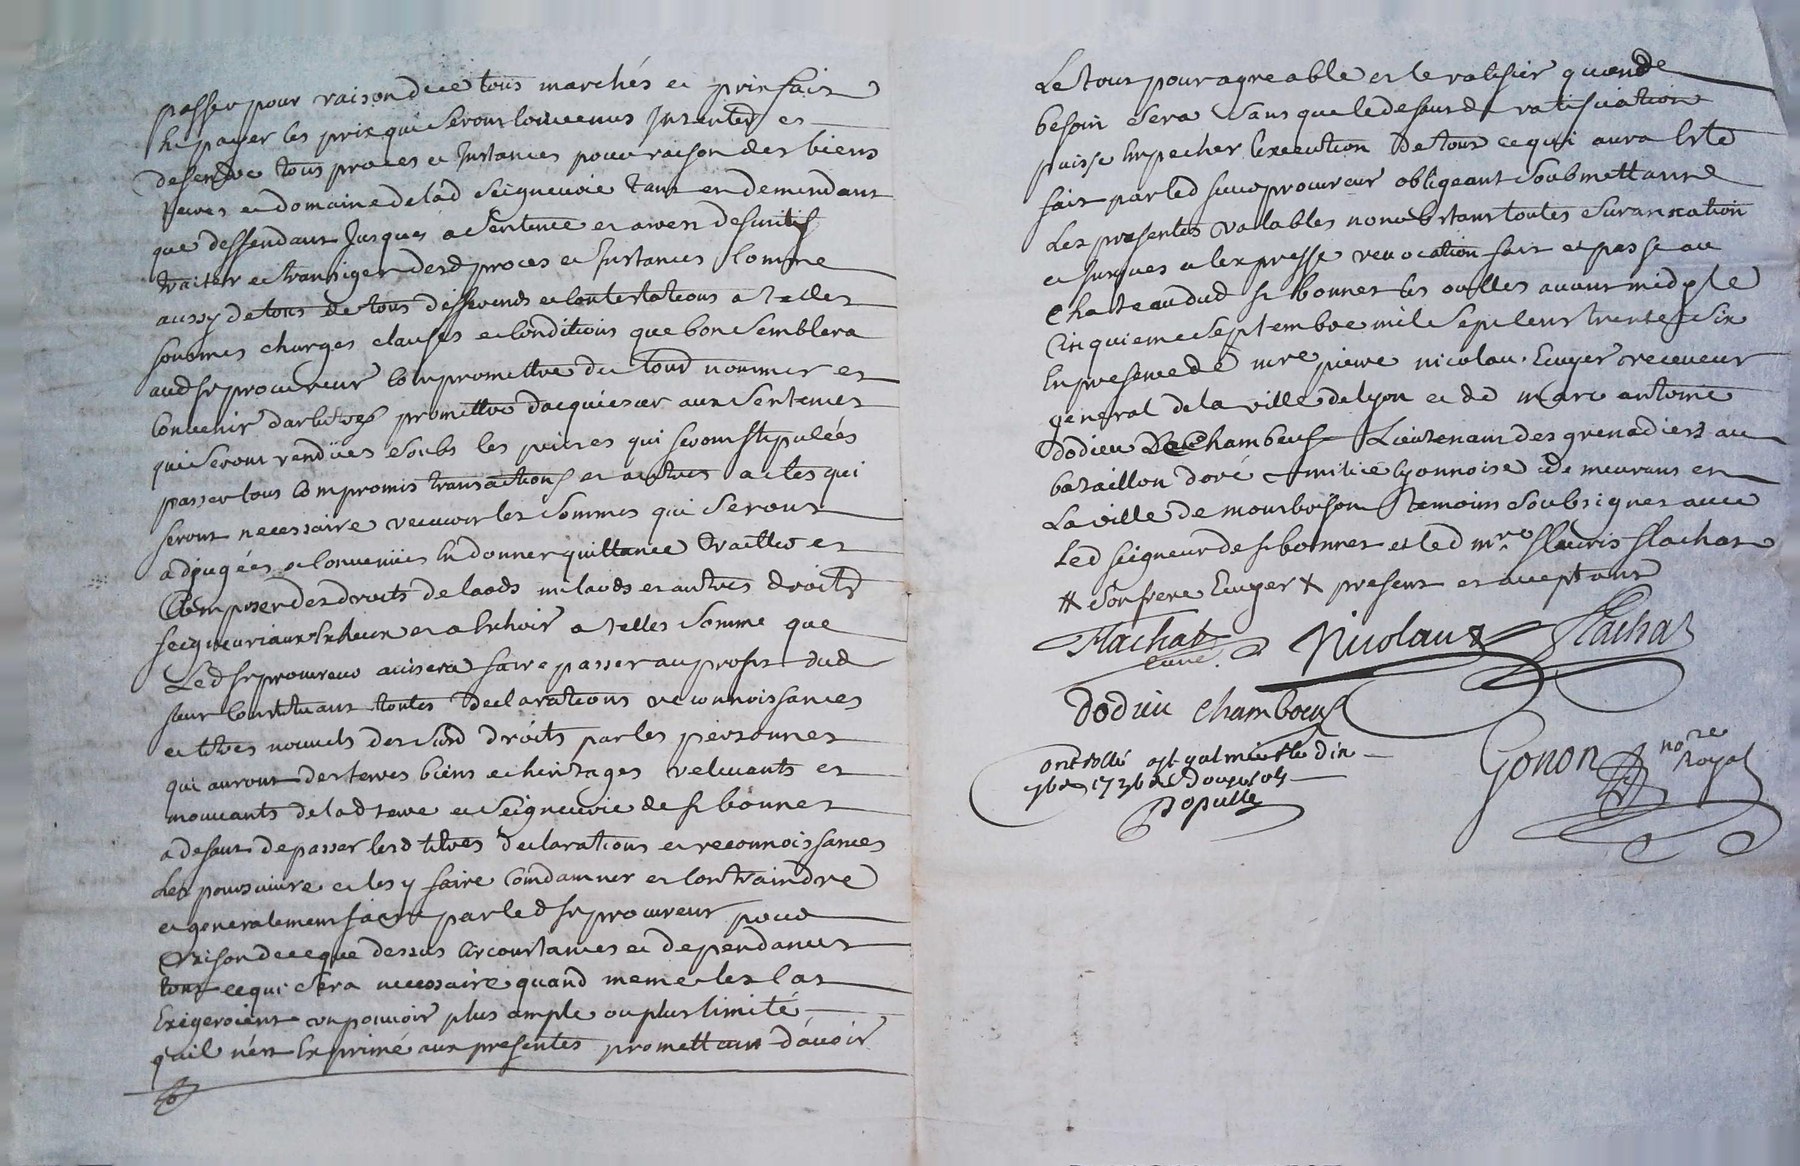 passer pour raison de ce tous marchés et prix fait
En payer les prix qui seront convenus Intenter et
defendre tous proces et Instances pour raison des biens
terres et domaine de lad seigneurie tant en demendant
que deffendant Jusques a sentence et arrest definitif
traiter et transiger desd proces et Instances Comme
aussy de tous de tous differends et Contestations a telles
sommes charges clauses et Conditions que bon semblera
aud sr procureur Compromettre du tout nommer et
Convenir darbitres promettre dacquiescer aux sentences
qui seront rendües soubs les peines qui seront stipulées
passer tous Compromis transactions et autres actes qui
seront necessaire recevoir les sommes qui seront
adjugées et Convenües En donner quittance traitter et
Composer des droits de laods milaods et autres droits
seigneuriaux Echeux et a Echoir a telles somme que
Led sr procureur avisera faire passer au profit dud
sieur Constituant toutes declarations reconnoissances
et titres nouvels des susd droits par les personnes
qui auront des terres biens et heritages relevants et
mouvants de lad terre et seigneurie de st bonnet
a defaut de passer lesd titres declarations et reconnoissances
Les poursuivre et les y faire Condamner et Contraindre
et generalement faire par led sr procureur pour
raison de ce que dessus circonstances et dependances
tout ce qui sera necessaire quand meme les cas
Exigeroient un pouvoir plus ample ou plus limité
quil nest Exprimé aux presentes promettant davoir
Le tout pour agreable et le ratifier quand de
besoin sera sans que le defaut de ratification
puisse Empecher lexecution de tout ce qui aura Esté
fait par led sieur procureur obligeant soubmettant
Les presentes valables nonobstant toutes surannation
et Jusques a lexpresse revocation fait et passé au
chateau dud st bonnet les oulles avant midy le
Cinquieme septembre mil sept cens trente six
En presence de mre pierre nicolau Ecuyer receveur
general de la ville de lyon et de marc antoine
dodieu De Chambeuf Lieutenant des grenadiers au
bataillon doré milice lyonnoise demeurant en
La ville de montbrison temoins soubsignes avec
Led seigneur de st bonnet et led mre fleuris flachat
# son frere Ecuyer X present et acceptant
Flachat Nicolau Flachat
curé
Dodieu Chamboeuf
Controllé a st galmier le dix
7bre 1736 Recu douze sols
Populle
Gonon nore
Royal